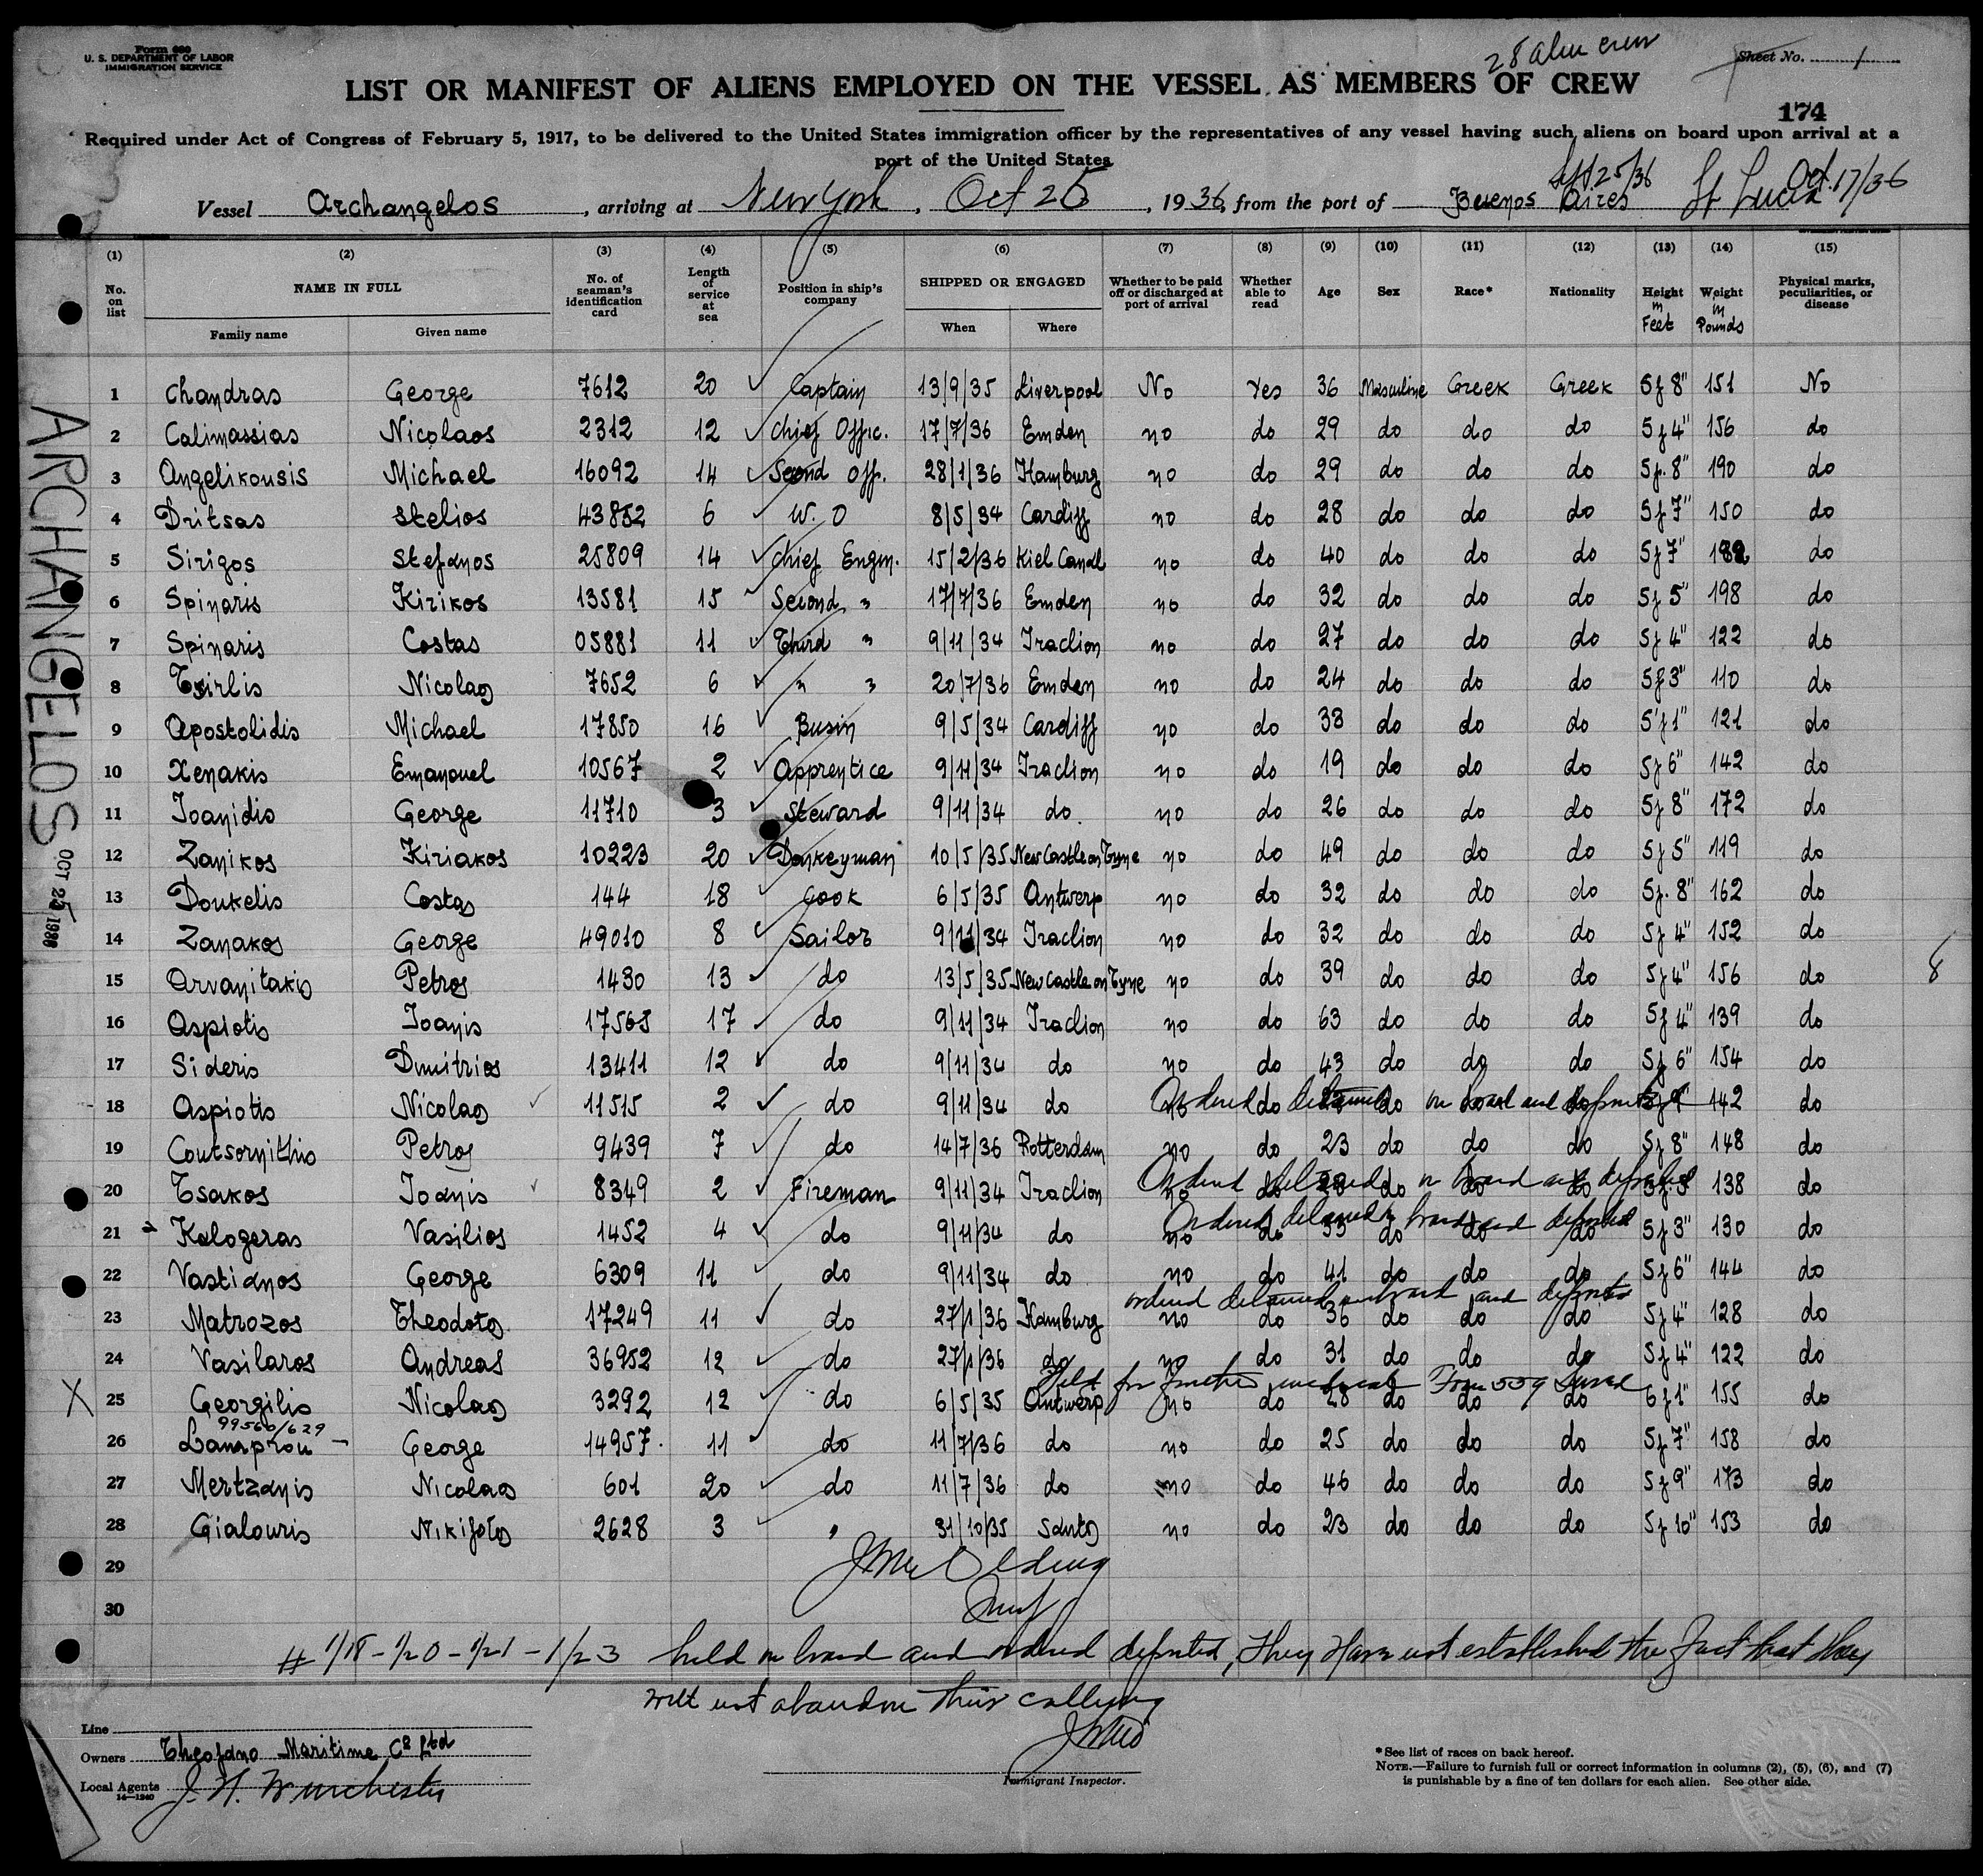 Form 680
U. S. DEPARTMENT OF LABOR
IMMIGRATION SERVICE
28 alien crew
Sheet No. 1
LIST OR MANIFEST OF ALIENS EMPLOYED ON THE VESSEL AS MEMBERS OF CREW
174
Required under Act of Congress of February 5, 1917, to be delivered to the United States immigration officer by the representatives of any vessel having such aliens on board upon arrival at a
port of the United States
Sept 25/36 Oct. 17/36
Vessel Archangelos, arriving at New York, Oct 25, 1936, from the port of Buenos Aires St Lucia
(1) (2) (3) (4) (5) (6) (7) (8) (9) (10) (11) (12) (13) (14) (15)
No. on list NAME IN FULL Family name Given name No. of seaman's identification card Length of service at sea Position in ship's company SHIPPED OR ENGAGED When Where Whether to be paid off or discharged at port of arrival Whether able to read Age Sex Race* Nationality Height in Feet Weight in Pounds Physical marks, peculiarities, or disease
1 Chandras George 7612 20 Captain 13/9/35 Liverpool No Yes 36 Masculine Greek Greek 5f 8" 151 No
2 Calimassias Nicolaos 2312 12 Chief Offic. 17/7/36 Emden no do 29 do do do 5f 4" 156 do
3 Angelikousis Michael 16092 14 Second Off. 28/1/36 Hamburg no do 29 do do do 5f. 8" 190 do
4 Dritsas Stelios 43852 6 W. O 8/5/34 Cardiff no do 28 do do do 5f 7" 150 do
5 Sirigos Stefanos 25809 14 Chief Engin. 15/2/36 Kiel Canal no do 40 do do do 5f 7" do
6 Spinaris Kirikos 13581 15 Second " 17/7/36 Emden no do 32 do do do 5f 5" 198 do
7 Spinaris Costas 05881 11 Third " 9/11/34 Iraclion no do 27 do do do 5f 4" 122 do
8 Tsirlis Nicolas 7652 6 " " 20/7/36 Emden no do 24 do do do 5f 3" 110 do
9 Apostolidis Michael 17850 16 Busin 9/5/34 Cardiff no do 38 do do do 5f 1" 121 do
10 Xenakis Emanouel 10567 2 Apprentice 9/11/34 Iraclion no do 19 do do do 5f 6" 142 do
11 Ioanidis George 11710 3 Steward 9/11/34 do. no do 26 do do do 5f 8" 172 do
12 Zanikos Kiriakos 10223 20 Donkeyman 10/5/35 New Castle on Tyne no do 49 do do do 5f 5" 119 do
13 Doukelis Costas 144 18 Cook 6/5/35 Antwerp no do 32 do do do 5f. 8" 162 do
14 Zanakos George 49010 8 Sailor 9/11/34 Iraclion no do 32 do do do 5f 4" 152 do
15 Arvanitakis Petros 1430 13 do 13/5/35 New Castle on Tyne no do 39 do do do 5f 4" 156 do
8
16 Aspiotis Ioanis 17 do 9/11/34 Iraclion no do 63 do do do 5f 4" 139 do
17 Sideris Dimitrios 13411 12 do 9/11/34 do no do 43 do do do 5f 6" 154 do
18 Aspiotis Nicolas 11515 2 do 9/11/34 do no do do do do 142 do
Ordered detained on board and deported
19 Coutsornithis Petros 9439 7 do 14/7/36 Rotterdam no do 23 do do do 5f 8" 148 do
20 Tsakos Ioanis 8349 2 Fireman 9/11/34 Iraclion no do do do do 138 do
Ordered detained on board and deported
21 Kalogeras Vasilios 1452 4 do 9/11/34 do no do do do do 5f 3" 130 do
Ordered detained on board and deported
22 Vastianos George 6309 11 do 9/11/34 do no do 41 do do do 5f 6" 144 do
23 Matrozos Theodotos 17249 11 do 27/1/36 Hamburg no do 36 do do do 5f 4" 128 do
ordered detained on board and deported
24 Vasilaros Andreas 36952 12 do 27/1/36 do no do 31 do do do 5f 4" 122 do
25 Georgilis Nicolas 3292 12 do 6/5/35 Antwerp no do 28 do do do 6f 1" 155 do
Held for further Form 559 Served
99560/629
26 Lamprou George 14957 11 do 11/7/36 do no do 25 do do do 5f 7" 158 do
27 Mertzanis Nicolaos 601 20 do 11/7/36 do no do 46 do do do 5f 9" 173 do
28 Gialouris Nikifotos 2628 3 " 31/10/35 Santos no do 23 do do do 5f 10" 153 do
29
30
# 1/18 - 1/20 - 1/21 - 1/23 held on board and ordered deported, they have not established the fact that they
will not abandon their calling
Line
Owners Theofano Maritime Co Ltd
Local Agents J. H. Winchester
14—1240
Immigrant Inspector.
*See list of races on back hereof.
NOTE.—Failure to furnish full or correct information in columns (2), (5), (6), and (7)
is punishable by a fine of ten dollars for each alien. See other side.
ARCHANGELOS
OCT 25 1936